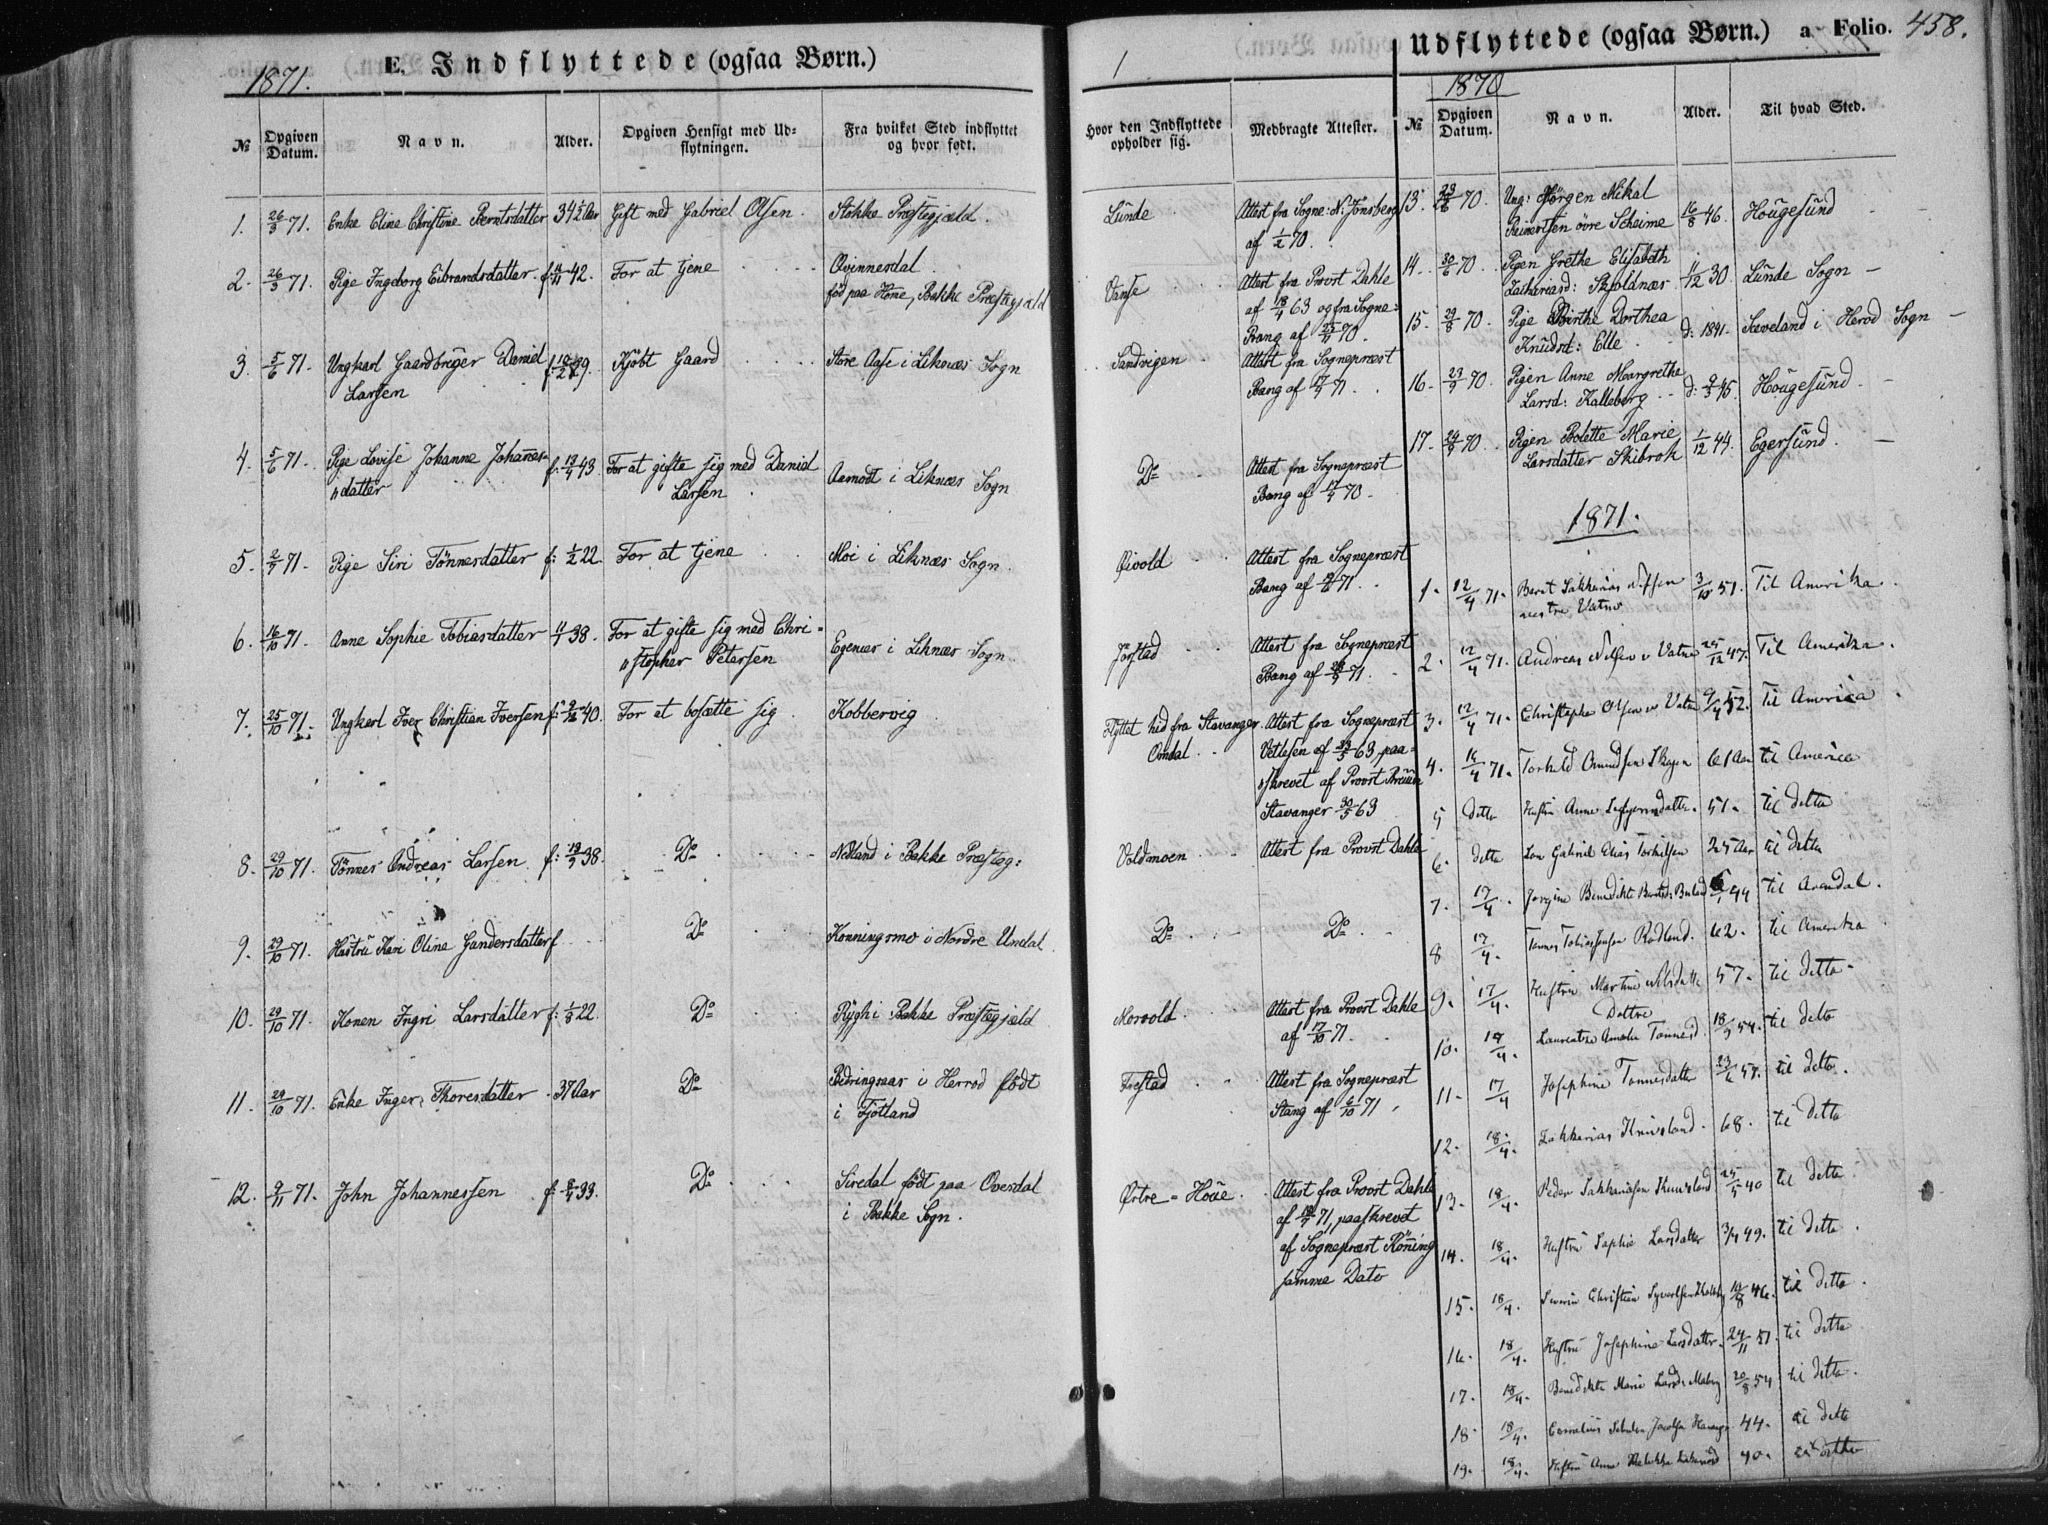 1871.
E. Indflyttede (ogsaa Børn.)
№
Opgiven Datum.
Navn.
Alder.
Opgiven Hensigt med Ud-
flytningen.
Fra hvilket Sted indflyttet
og hvor født.
Hvor den Indflyttede
opholder sig.
Medbragte Attester.
1. 26/3 71. Enke Eline Christine Berntsdatter 34 1/2 Aar Gift med Gabriel Olsen. Stokke Præstegjæld. Lunde Attest fra Sogne: N. Jonsberg
af 1/2 70.
2. 26/3 71. Pige Ingeborg Eibrandsdatter. 42. For at tjene Qvinnesdal
fød paa Hone, Bakke Præstegjæld Vanse Attest fra Provst Dahle
af 18/4 63 og fra Sogne=
Bang af 70.
3. 5/6 71. Ungkarl Gaardbruger Daniel
Larsen Kjøbt Gaard Store Aase i Liknæs Sogn Sandvigen Attest fra Sognepræst
Bang af 17/4 71.
4. 5/6 71. Pige Lovise Johanne Johannes-
datter f: 19/4 43 For at gifte sig med Daniel
Larsen Aamodt i Liknæs Sogn Do Attest fra Sognepræst
Bang af 17/4 70.
5. 2/7 71. Pige Siri Tönnesdatter f: 1/2 22. For at tjene Moi i Liknæs Sogn. Øivold Attest fra Sognepræst
Bang af 71.
6. 16/10 71. Anne Sophie Tobiasdatter 38. For at gifte sig med Chri=
stopher Petersen Egenæs i Liknæs Sogn Jørstad Attest fra Sognepræst
Bang af 71.
7. 25/10 71. Ungkarl Iver Christian Iversen 40. For at bosætte sig Kobbervig Flyttet hid fra Stavanger.
Omdal Attest fra Sognepræst
Vetlesen af 63 paa=
skrevet af Provst
Stavanger 30/5 63
8. 29/10 71. Tönnes Andreas Larsen f: 38. Do Nedland i Bakke Præsteg: Voldmoen Attest fra Provst Dahle
9. 29/10 71. Hustru Kari Oline Gundersdatter f Do Konningsmo i Nordre Undal Do Do
10. 29/10 71. Konen Ingri Larsdatter f: 1/8 22. Do Rygh i Bakke Præstegjæld Morvold Attest fra Provst Dahle
af 17/10 71.
11. 29/10 71. Enke Inger Thoresdatter. 37 Aar Do Bedringsaas i Herred født
i Fjotland Frestad Attest fra Sognepræst
Stang af 6/10 71
12. 9/11 71. John Johannessen. f: 8/4 33. Do Siredal født paa Oversdal
i Bakke Sogn. Østre-Houe Attest fra Provst Dahle
af 71, paaskrevet
af Sognepræst
samme Dato
Udflyttede (ogsaa Børn.) a. Folio. 458.
1870
№
Opgiven Datum.
Navn.
Alder.
Til hvad Sted.
13. 23/6 70. Ung: Jörgen Mikal
Reinertsen övre Scheime 16/8 46. Hougesund
14. 30/6 70 Pigen Grethe Elisabeth
Zachariasd: Skjoldnæs 11/12 30 Lunde Sogn
15. 29/8 70. Pige Birthe Dorthea
Knudsd: Elle d: 1841. Sæveland i Herod Sogn
16. 23/9 70 Pigen Anne Margrethe
Larsd: Kalleberg d: 9/3 45. Hougesund.
17. 29/9 70. Pigen Bolette Marie
Larsdatter Skibrok 1/12 44. Egersund.
1871.
1. 12/4 71. Berent Sakkarias Nilssen
nestre Vatne 3/10 51. Til Amerika.
2. 12/4 71. Andreas Nilsen v Vatne 25/12 47. Til Amerika.
3. 12/4 71. Christopher Olsen v Vatne 9/4 52. Til America
4. 16/4 71. Torkild Omundsen Skagen 61 Aar til America
5 ditto Hustru Anne 51. til ditto
6. ditto Søn Gabriel Elias Torkilsen 25 Aar til ditto
7. 17/4. Jorgine Benedikte 44 til Arendal.
8 17/4. Tönnes Tobiassen Rødland. 62. til Amerika
9. 17/4. Hustru Martine Nilsdatter 57. til ditto
Dottre
10. 17/4. Laurentse Amalie Tönnesd. 18/9 54. til ditto
11. 17/4 Josephine Tönnesdatter 23/6 57. til ditto.
12. 18/4. Zakkarias Knivsland. 68. til ditto
13. 18/4. Peder Sakkariasen Knivsland 25/5 40 til ditto.
14. 18/4. Hustru Sophie Larsdatter 3/4 49. til ditto.
15. 18/4. Severin Christian Syvertsen 19/8 46. til ditto.
16. 18/4. Hustru Josephine Larsdatter. 24/11 51. til ditto
17. 18/4. Benedikte Marie Larsd: Maberg 20/8 54 til ditto.
18. 18/4. Cornelius 44. til ditto
19. 18/4. Hustru Anne 40. til ditto